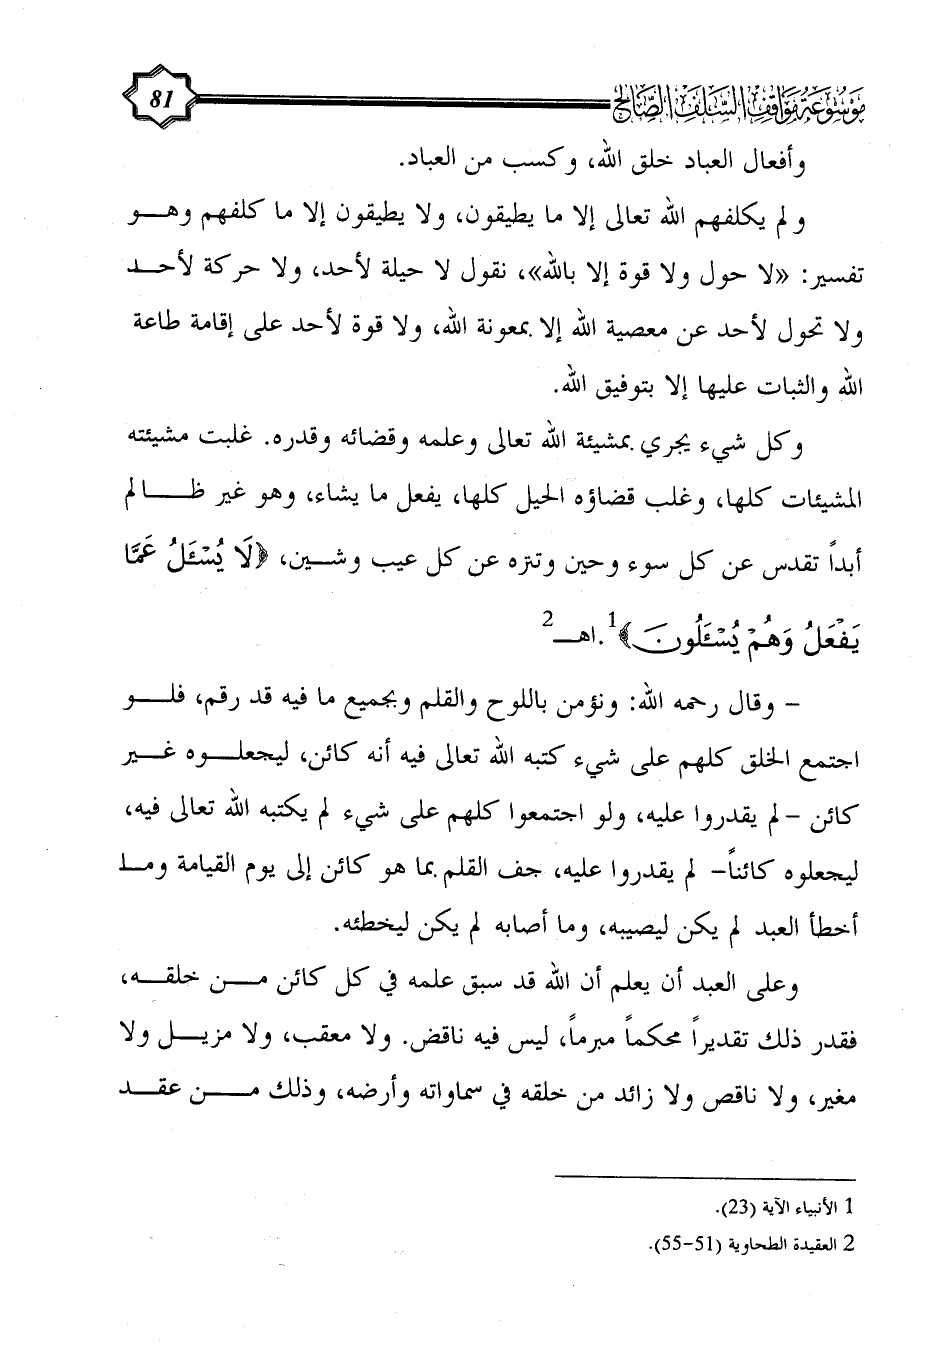 موسوعة مواقف السلف الصالح
81
وأفعال العباد خلق الله، وكسب من العباد.
ولم يكلفهم الله تعالى إلا ما يطيقون، ولا يطيقون إلا ما كلفهم وهــو
تفسير: «لا حول ولا قوة إلا بالله»، نقول لا حيلة لأحد، ولا حركة لأحـد
ولا تحول لأحد عن معصية الله إلا بمعونة الله، ولا قوة لأحد على إقامة طاعة
الله والثبات عليها إلا بتوفيق الله.
وكل شيء يجري بمشيئة الله تعالى وعلمه وقضائه وقدره. غلبت مشيئته
المشيئات كلها، وغلب قضاؤه الحيل كلها، يفعل ما يشاء، وهو غير ظـــالم
أبداً تقدس عن كل سوء وحين وتنزه عن كل عيب وشــين، ﴿لَا يُسْـَٔلُ عَمَّا
يَفْعَلُ وَهُمْ يُسْـَٔلُونَ﴾1.اهــ2
- وقال رحمه الله: ونؤمن باللوح والقلم وبجميع ما فيه قد رقم، فلــو
اجتمع الخلق كلهم على شيء كتبه الله تعالى فيه أنه كائن، ليجعلــوه غــير
كائن -لم يقدروا عليه، ولو اجتمعوا كلهم على شيء لم يكتبه الله تعالى فيه،
ليجعلوه كائناً- لم يقدروا عليه، جف القلم بما هو كائن إلى يوم القيامة ومـا
أخطأ العبد لم يكن ليصيبه، وما أصابه لم يكن ليخطئه.
وعلى العبد أن يعلم أن الله قد سبق علمه في كل كائن مــن خلقــه،
فقدر ذلك تقديراً محكماً مبرماً، ليس فيه ناقض. ولا معقب، ولا مزيــل ولا
مغير، ولا ناقص ولا زائد من خلقه في سماواته وأرضه، وذلك مــــن عقــد
1 الأنبياء الآية (23).
2 العقيدة الطحاوية (51-55).